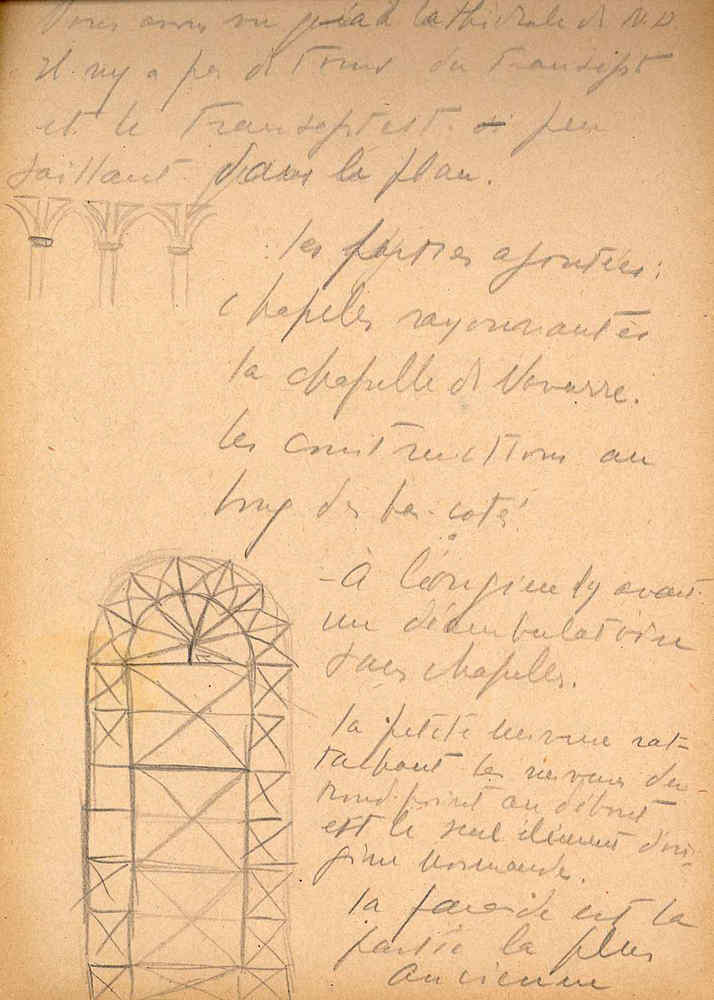 Nous avons vu la cathédrale de N.D.
Il ny a pas de Tours du Transept
et le Transept est si peu
saillant dans le plan.
les parties ajoutées:
chapelles rayonnantes
la chapelle de Navarre.
les constructions au
long des bas-cotés
- À l'origine Il y avait
un déambulatoire
sans chapelles.
la petite nervure rat-
tachant les nervures du
rond point au début
est le seul élément d'ori-
gine normande.
la façade est la
partie la plus
ancienne